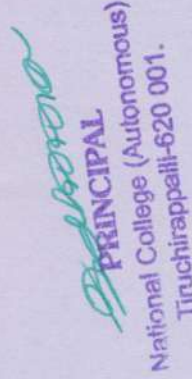 PRINCIPAL
National College (Autonomous)
Tiruchirappalli-620 001.